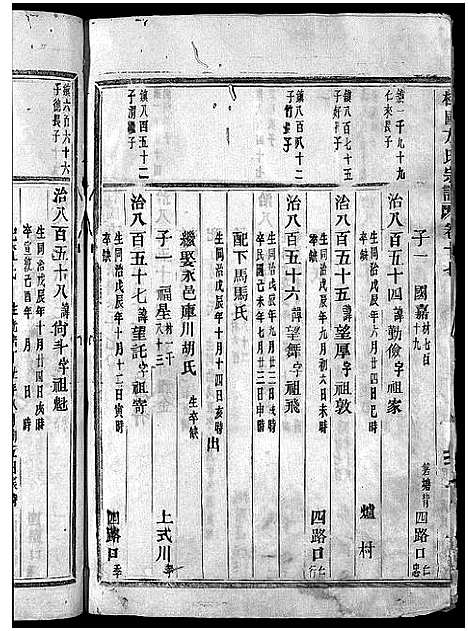 子一 國嘉
鎮一千九十九
仁來長子
治八百五十四諱勤儉字祖家
生同治戊辰年八月廿四日巳時
卒缺
爐村
四路口
鎮八百七十五
子好子
治八百五十五諱望厚字祖敦
生同治戊辰年九月初六日未時
卒缺
四路口行
鎮八百七十二
子竹子
治八百五十六諱望舞字祖飛
生同治戊辰年九月廿二日戌時
卒民國己未年九月廿三日申時
配下馬馬氏
生同治戊辰年十月十四日亥時
出
繼娶永邑庫川胡氏
生卒缺
子一 福星 材一千八十三
上式川
鎮八百四十二
子渭繼子
治八百五十七諱望託字祖寄
生同治戊辰年十月十二日寅時
卒缺
四路口季
鎮六百六十六
子德長子
治八百五十八諱尙斗字祖魁
生同治戊辰年十月廿四日戌時